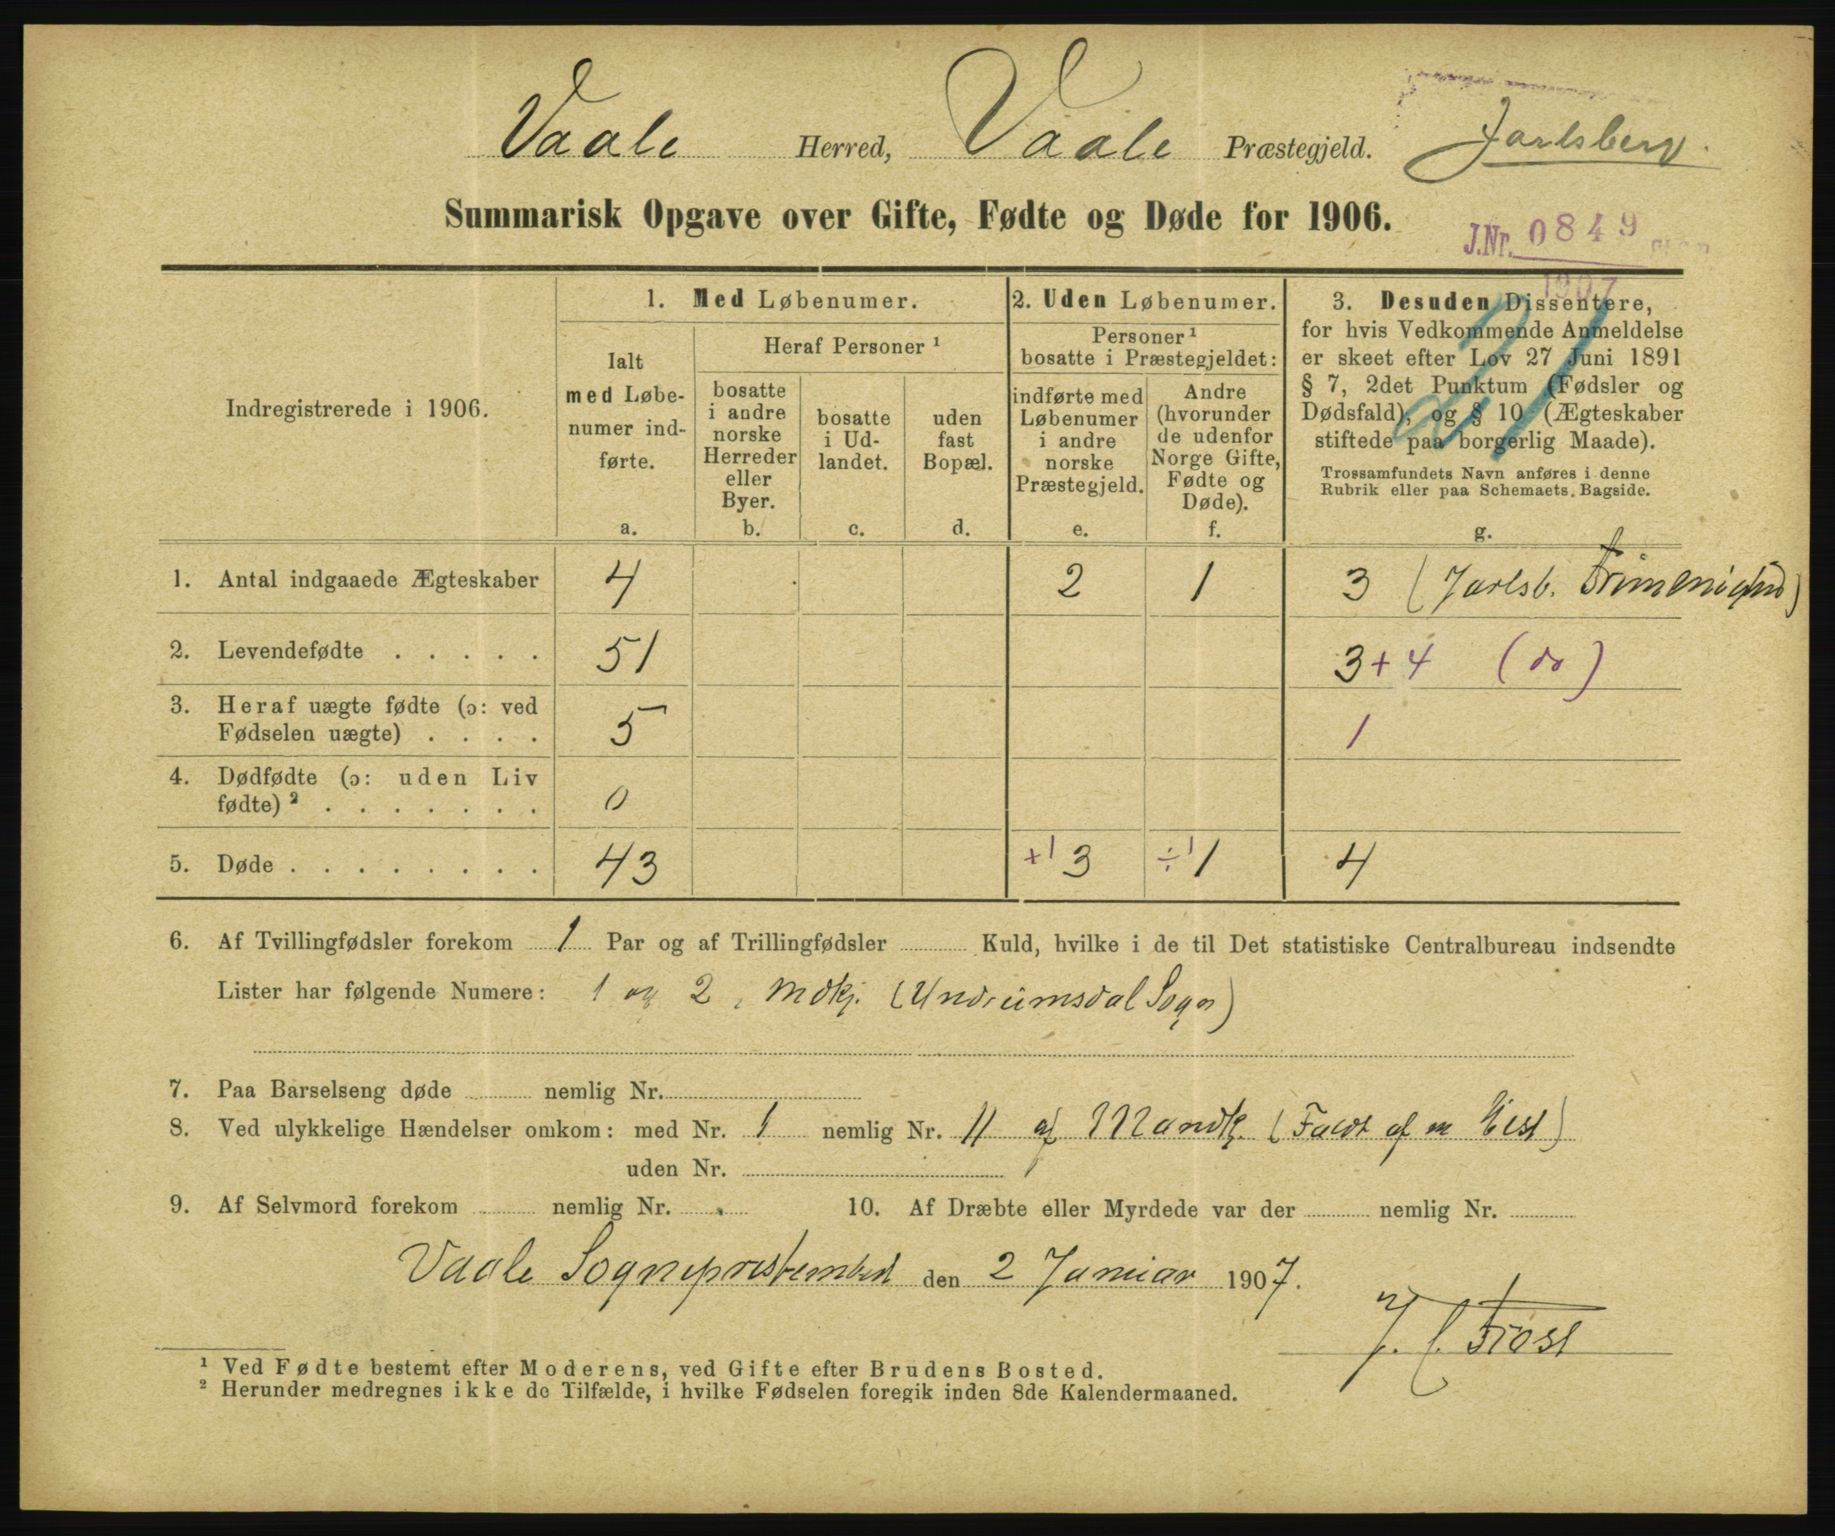 Vaale Herred, Vaale Præstegjeld. Jarlsberg.
Summarisk Opgave over Gifte, Fødte og Døde for 1906.
J.Nr. 0849
1907
21
Indregistrerede i 1906.
1. Med Løbenumer.
Ialt med Løbe-
numer ind-
førte.
a.
Heraf Personer ¹
bosatte
i andre
norske
Herreder
eller
Byer.
b.
bosatte
i Ud-
landet.
c.
uden
fast
Bopæl.
d.
2. Uden Løbenumer.
Personer ¹
bosatte i Præstegjeldet:
indførte med
Løbenumer
i andre
norske
Præstegjeld.
e.
Andre
(hvorunder
de udenfor
Norge Gifte,
Fødte og
Døde).
f.
3. Desuden Dissentere,
for hvis Vedkommende Anmeldelse
er skeet efter Lov 27 Juni 1891
§ 7, 2det Punktum (Fødsler og
Dødsfald), og § 10 (Ægteskaber
stiftede paa borgerlig Maade).
Trossamfundets Navn anføres i denne
Rubrik eller paa Schemaets Bagside.
g.
1. Antal indgaaede Ægteskaber 4 2 1 3 (Jarlsb. Frimenighed)
2. Levendefødte . . . . . 51 3 + 4 (do)
3. Heraf uægte fødte (ɔ: ved
Fødselen uægte) . . . . 5 1
4. Dødfødte (ɔ: uden Liv
fødte) ² . . . . . . . 0
5. Døde . . . . . . . . 43 +1 3 ÷1 1 4
6. Af Tvillingfødsler forekom 1 Par og af Trillingfødsler Kuld, hvilke i de til Det statistiske Centralbureau indsendte
Lister har følgende Numere: 1 og 2, Mdkj. (Undrumsdal Sogn)
7. Paa Barselseng døde nemlig Nr.
8. Ved ulykkelige Hændelser omkom: med Nr. 1 nemlig Nr. 11 af Mandkj. (Faldt af en Hest)
uden Nr.
9. Af Selvmord forekom nemlig Nr. 10. Af Dræbte eller Myrdede var der nemlig Nr.
Vaale Sogneprestembed den 2 Januar 1907.
Frost
¹ Ved Fødte bestemt efter Moderens, ved Gifte efter Brudens Bosted.
² Herunder medregnes ikke de Tilfælde, i hvilke Fødselen foregik inden 8de Kalendermaaned.